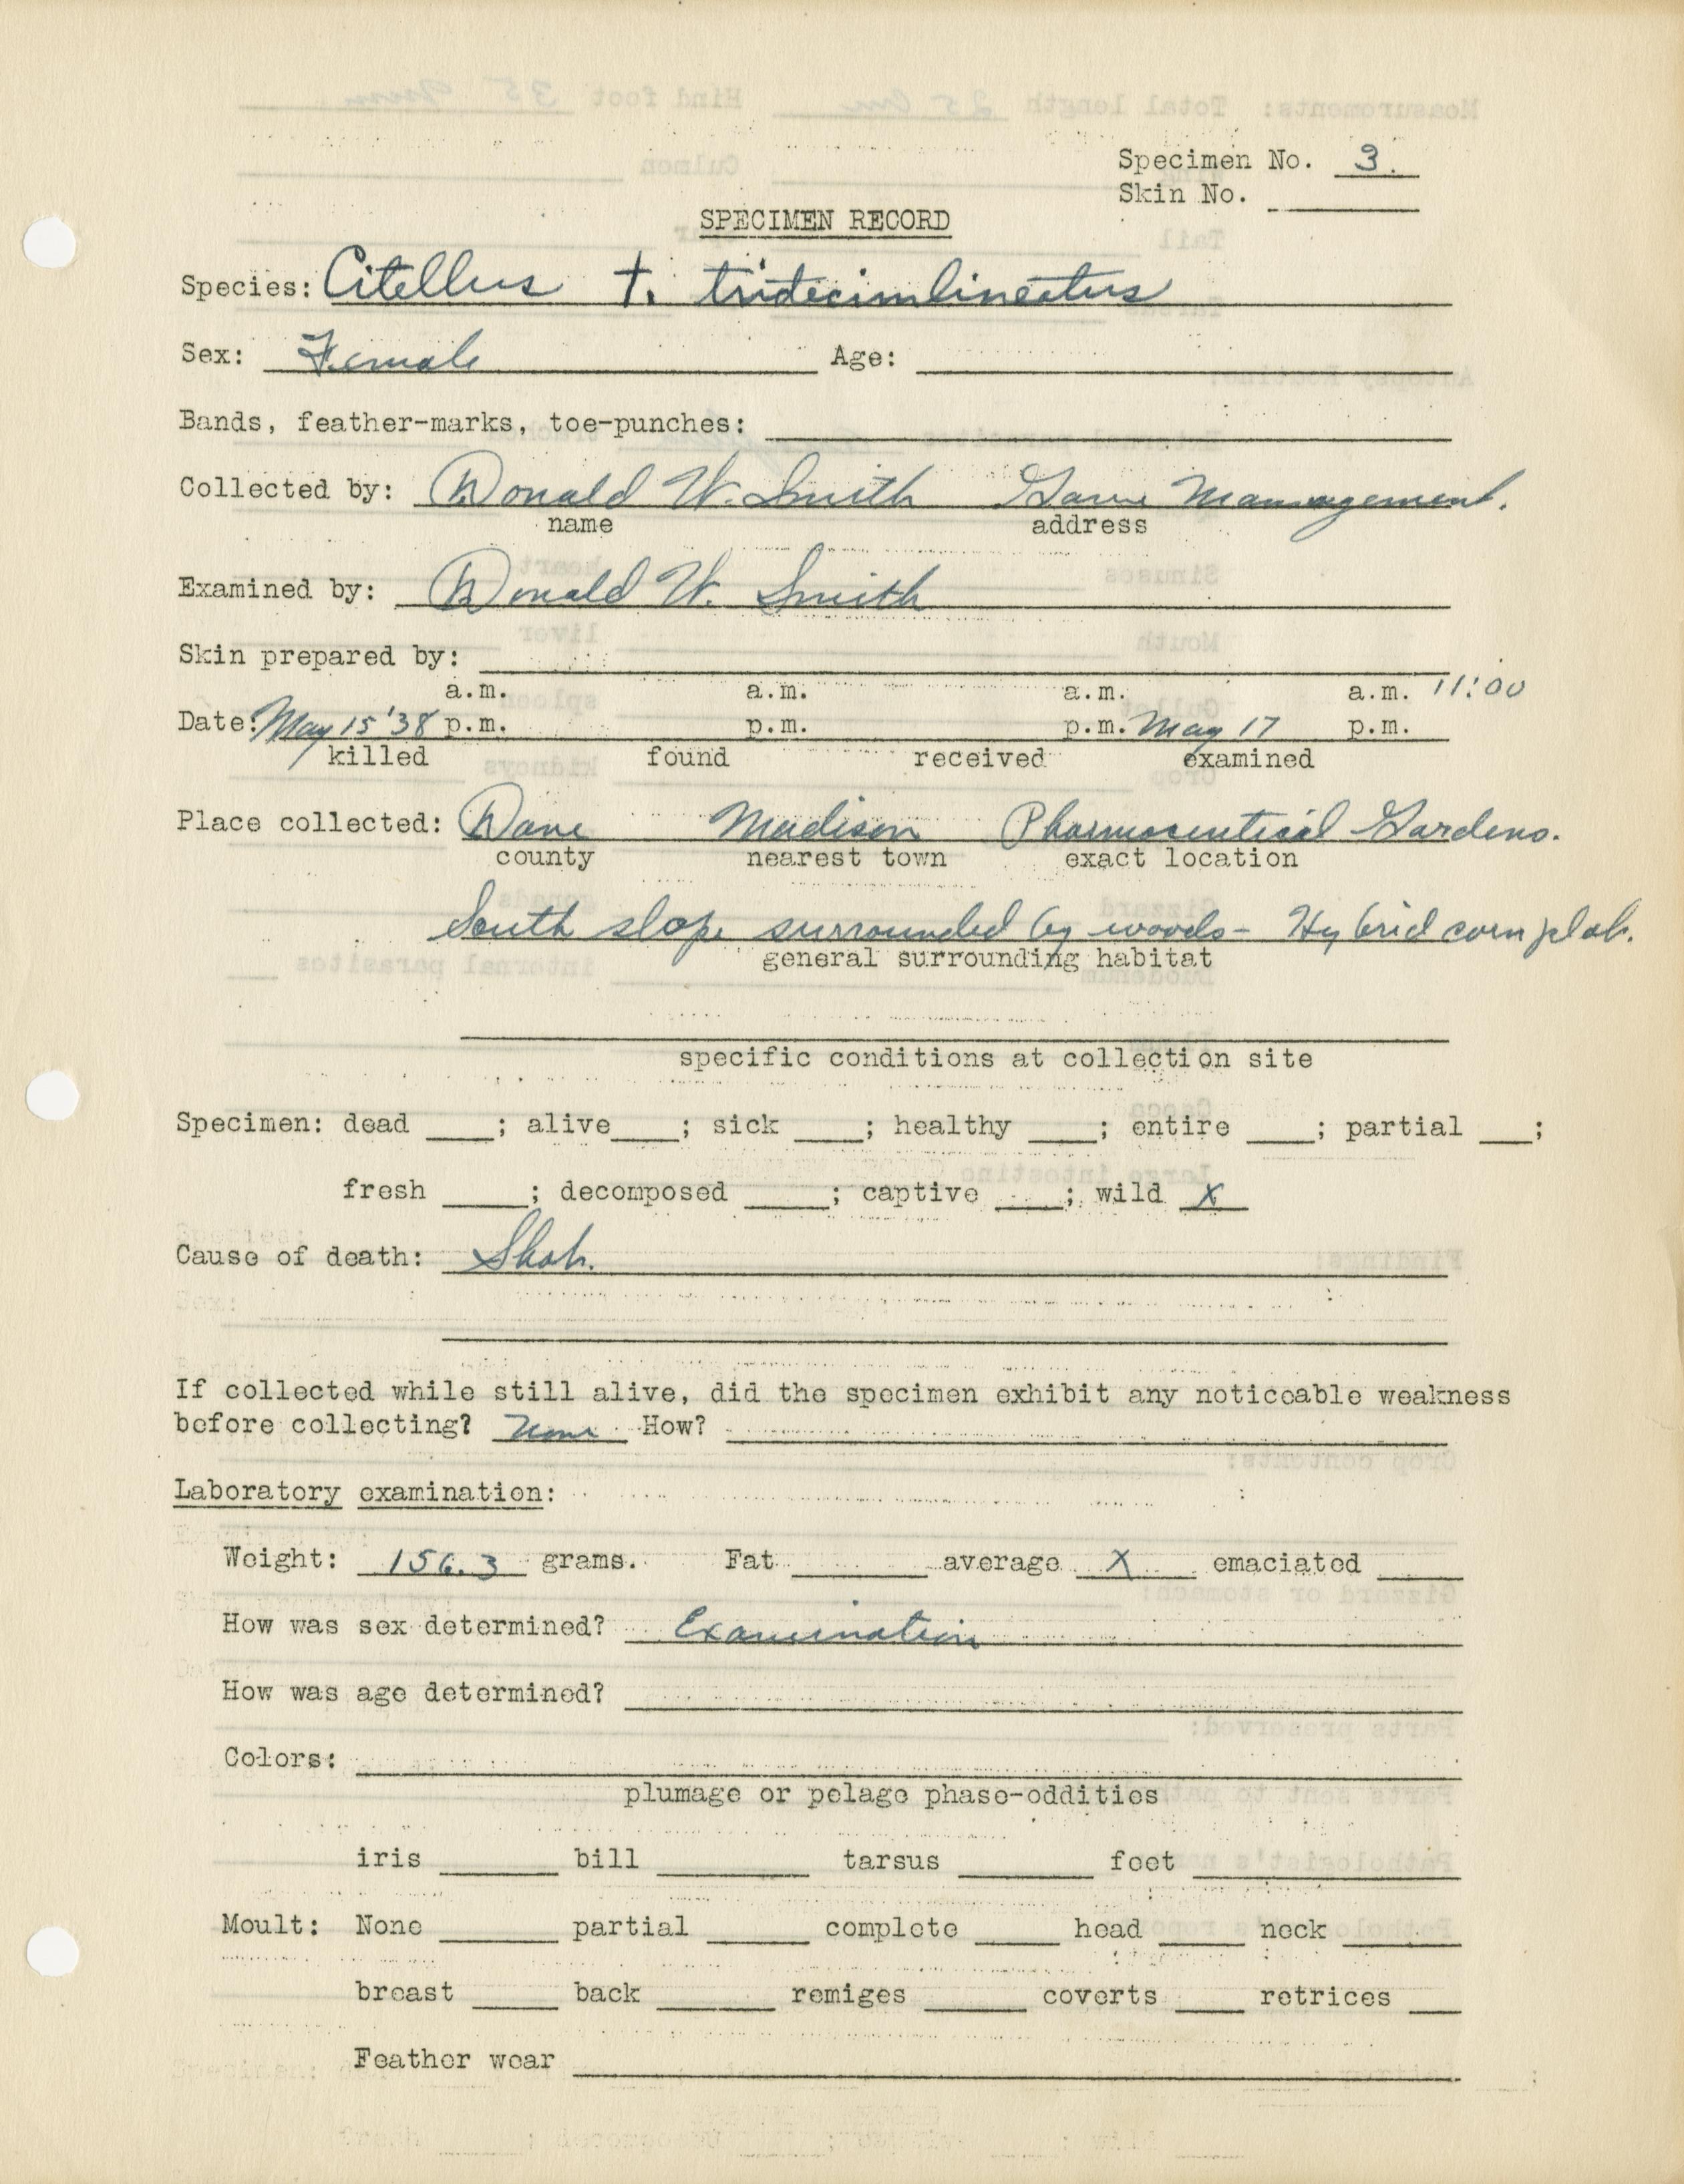 Specimen No. 3.
Skin No.
SPECIMEN RECORD
Species: Citellus t. tridecimlineatus
Sex: Female Age:
Bands, feather-marks, toe-punches:
Collected by: Donald W. Smith Game Management.
name address
Examined by: Donald W. Smith
Skin prepared by:
a.m. a.m. a.m. a.m. 11:00
Date: May 15 '38 p.m. p.m. p.m. May 17 p.m.
killed found received examined
Place collected: Dane Madison Pharmaceutical Gardens.
county nearest town exact location
South slope surrounded by woods - Hybrid corn plot.
general surrounding habitat
specific conditions at collection site
Specimen: dead ____; alive____; sick ____; healthy ____; entire ____; partial ___;
fresh _____; decomposed _____; captive ____; wild X
Cause of death: Shot.
If collected while still alive, did the specimen exhibit any noticeable weakness
before collecting? None How?
Laboratory examination:
Weight: 156.3 grams. Fat ________ average X emaciated _____
How was sex determined? Examination
How was age determined?
Colors:
plumage or pelage phase-oddities
iris _______ bill _________ tarsus ________ foot
Moult: None _______ partial ______ complete _____ head _____ neck _______
breast _____ back _______ remiges ______ coverts ____ retrices ___
Feather wear